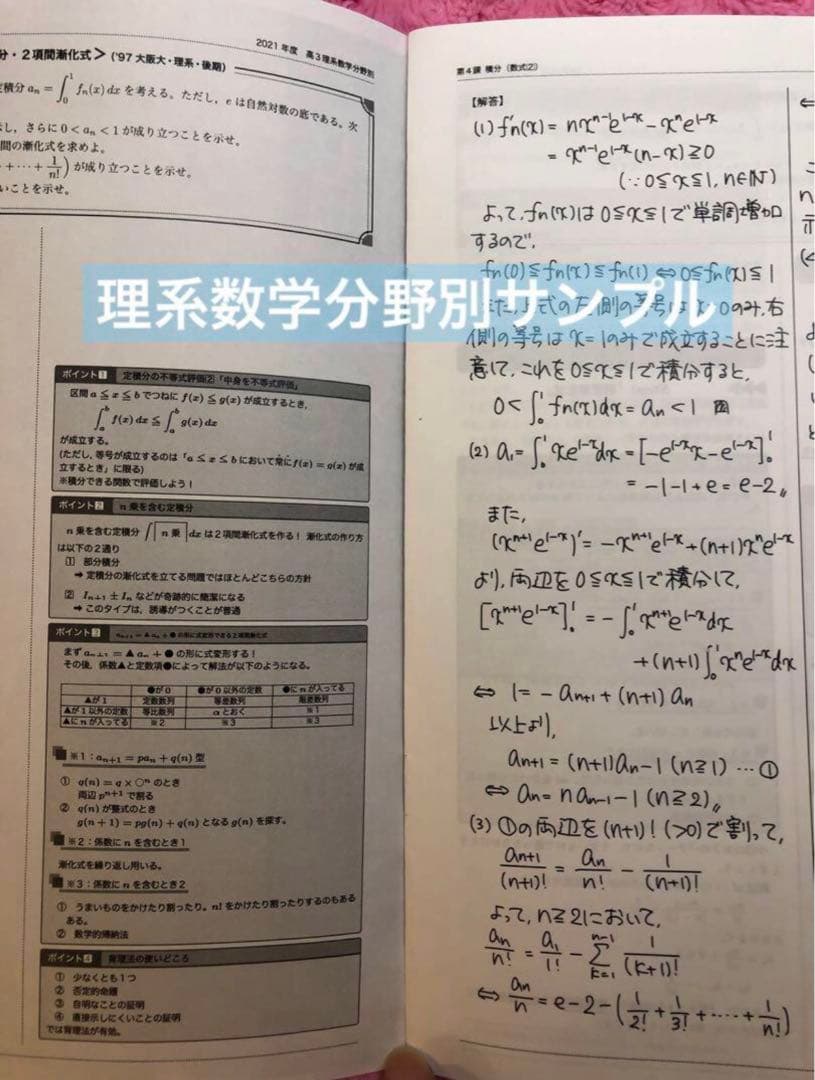 2021年度 高3理系数学分野別
分・2項間漸化式＞（'97 大阪大・理系・後期）
定積分 a_n = ∫_0^1 f_n(x) dx を考える。ただし，e は自然対数の底である。次
し，さらに 0 < a_n < 1 が成り立つことを示せ。
間の漸化式を求めよ。
+ ⋯ + 1/n!) が成り立つことを示せ。
いことを示せ。
理系数学分野別サンプル
ポイント1 定積分の不等式評価② 「中身を不等式評価」
区間 a ≦ x ≦ b でつねに f(x) ≦ g(x) が成立するとき，
∫_a^b f(x) dx ≦ ∫_a^b g(x) dx
が成立する。
(ただし，等号が成立するのは「a ≦ x ≦ b において常に f(x) = g(x) が成
立するとき」に限る)
※積分できる関数で評価しよう！
ポイント2 n 乗を含む定積分
n 乗を含む定積分 ∫ n 乗 dx は2項間漸化式を作る！ 漸化式の作り方
は以下の2通り
① 部分積分
➡ 定積分の漸化式を立てる問題ではほとんどこちらの方針
② I_{n+1} ± I_n などが奇跡的に簡潔になる
➡ このタイプは，誘導がつくことが普通
ポイント3 a_{n+1} = ▲a_n + ● の形に式変形できる2項間漸化式
まず a_{n+1} = ▲a_n + ● の形に式変形する！
その後，係数▲と定数項●によって解法が以下のようになる。
●が0 ●が0以外の定数 ●にnが入ってる
▲が1 定数数列 等差数列 階差数列
▲が1以外の定数 等比数列 αとおく ※1
▲にnが入ってる ※2 ※3 ※3
※1：a_{n+1} = pa_n + q(n) 型
① q(n) = q × ○^n のとき
両辺 p^{n+1} で割る
② q(n) が整式のとき
g(n+1) = pg(n) + q(n) となる g(n) を探す。
※2：係数に n を含むとき1
漸化式を繰り返し用いる。
※3：係数に n を含むとき2
① うまいものをかけたり割ったり。n! をかけたり割ったりするのもある
ある。
② 数学的帰納法
ポイント4 背理法の使いどころ
① 少なくとも1つ
② 否定的命題
③ 自明なことの証明
④ 直接示しにくいことの証明
では背理法が有効。
第4講 積分（数式②）
【解答】
(1) f'_n(x) = nx^{n-1}e^{1-x} - x^n e^{1-x}
= x^{n-1}e^{1-x}(n-x) ≧ 0
(∵ 0≦x≦1, n∈ℕ)
よって，f_n(x)は 0≦x≦1で単調増加
するので，
f_n(0) ≦ f_n(x) ≦ f_n(1) ⇔ 0≦f_n(x)≦1
また，上式の左側の等号はx=0のみ，右
側の等号は x=1のみで成立することに注
意して，これを0≦x≦1で積分すると，
0 < ∫_0^1 f_n(x)dx = a_n < 1
(2) a_1 = ∫_0^1 xe^{1-x}dx = [-e^{1-x}x - e^{1-x}]_0^1
= -1-1+e = e-2
また，
(x^{n+1}e^{1-x})' = -x^{n+1}e^{1-x} + (n+1)x^n e^{1-x}
より，両辺を0≦x≦1で積分して，
[x^{n+1}e^{1-x}]_0^1 = -∫_0^1 x^{n+1}e^{1-x}dx
+ (n+1)∫_0^1 x^n e^{1-x}dx
⇔ 1 = -a_{n+1} + (n+1)a_n
以上より，
a_{n+1} = (n+1)a_n - 1 (n≧1) … ①
⇔ a_n = na_{n-1} - 1 (n≧2)
(3) ①の両辺を(n+1)! (>0)で割って，
a_{n+1}/(n+1)! = a_n/n! - 1/(n+1)!
よって，n≧2において，
a_n/n! = a_1/1! - Σ_{k=1}^{n-1} 1/(k+1)!
⇔ a_n/n = e-2-(1/2! + 1/3! + ⋯ + 1/n!)